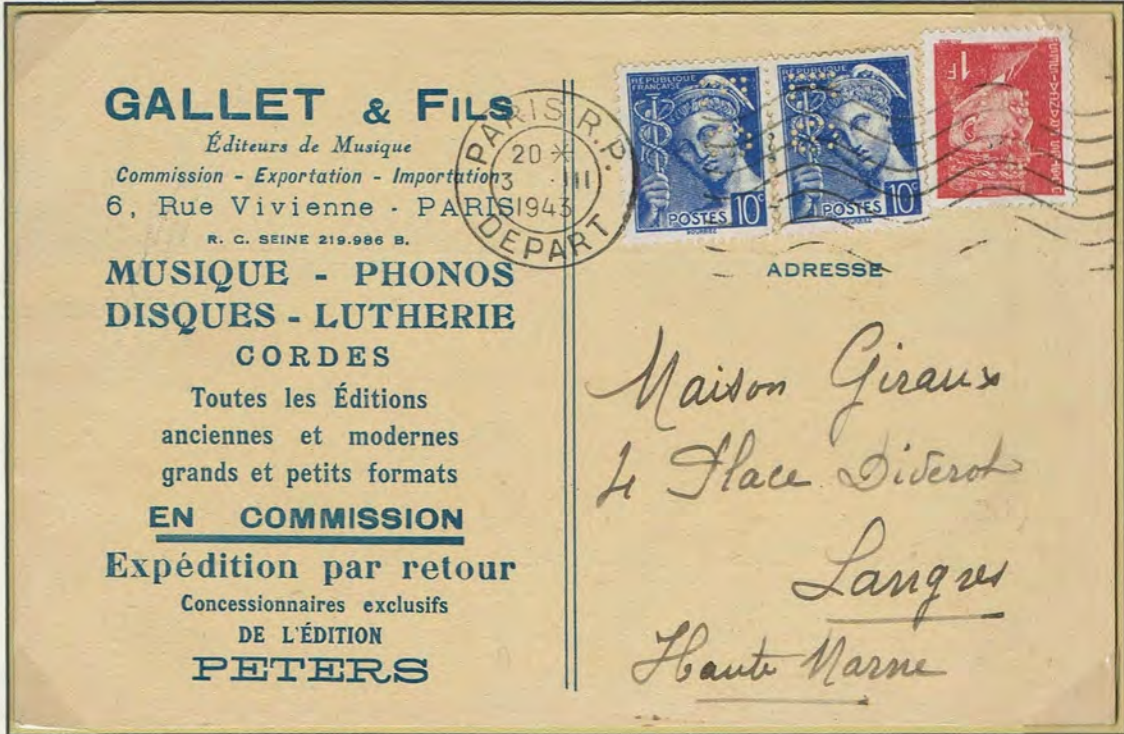 GALLET & FILS
Éditeurs de Musique
Commission - Exportation - Importation
6, Rue Vivienne - PARIS
R. C. SEINE 219.986 B.
MUSIQUE - PHONOS
DISQUES - LUTHERIE
CORDES
Toutes les Éditions
anciennes et modernes
grands et petits formats
EN COMMISSION
Expédition par retour
Concessionnaires exclusifs
DE L'ÉDITION
PETERS
PARIS R.P.
20 *
3 III
1943
DEPART
RÉPUBLIQUE
FRANÇAISE
POSTES 10c
RÉPUBLIQUE
FRANÇAISE
POSTES 10c
1F
ADRESSE
Maison Giraux
4 Place Diderot
Langres
Haute Marne